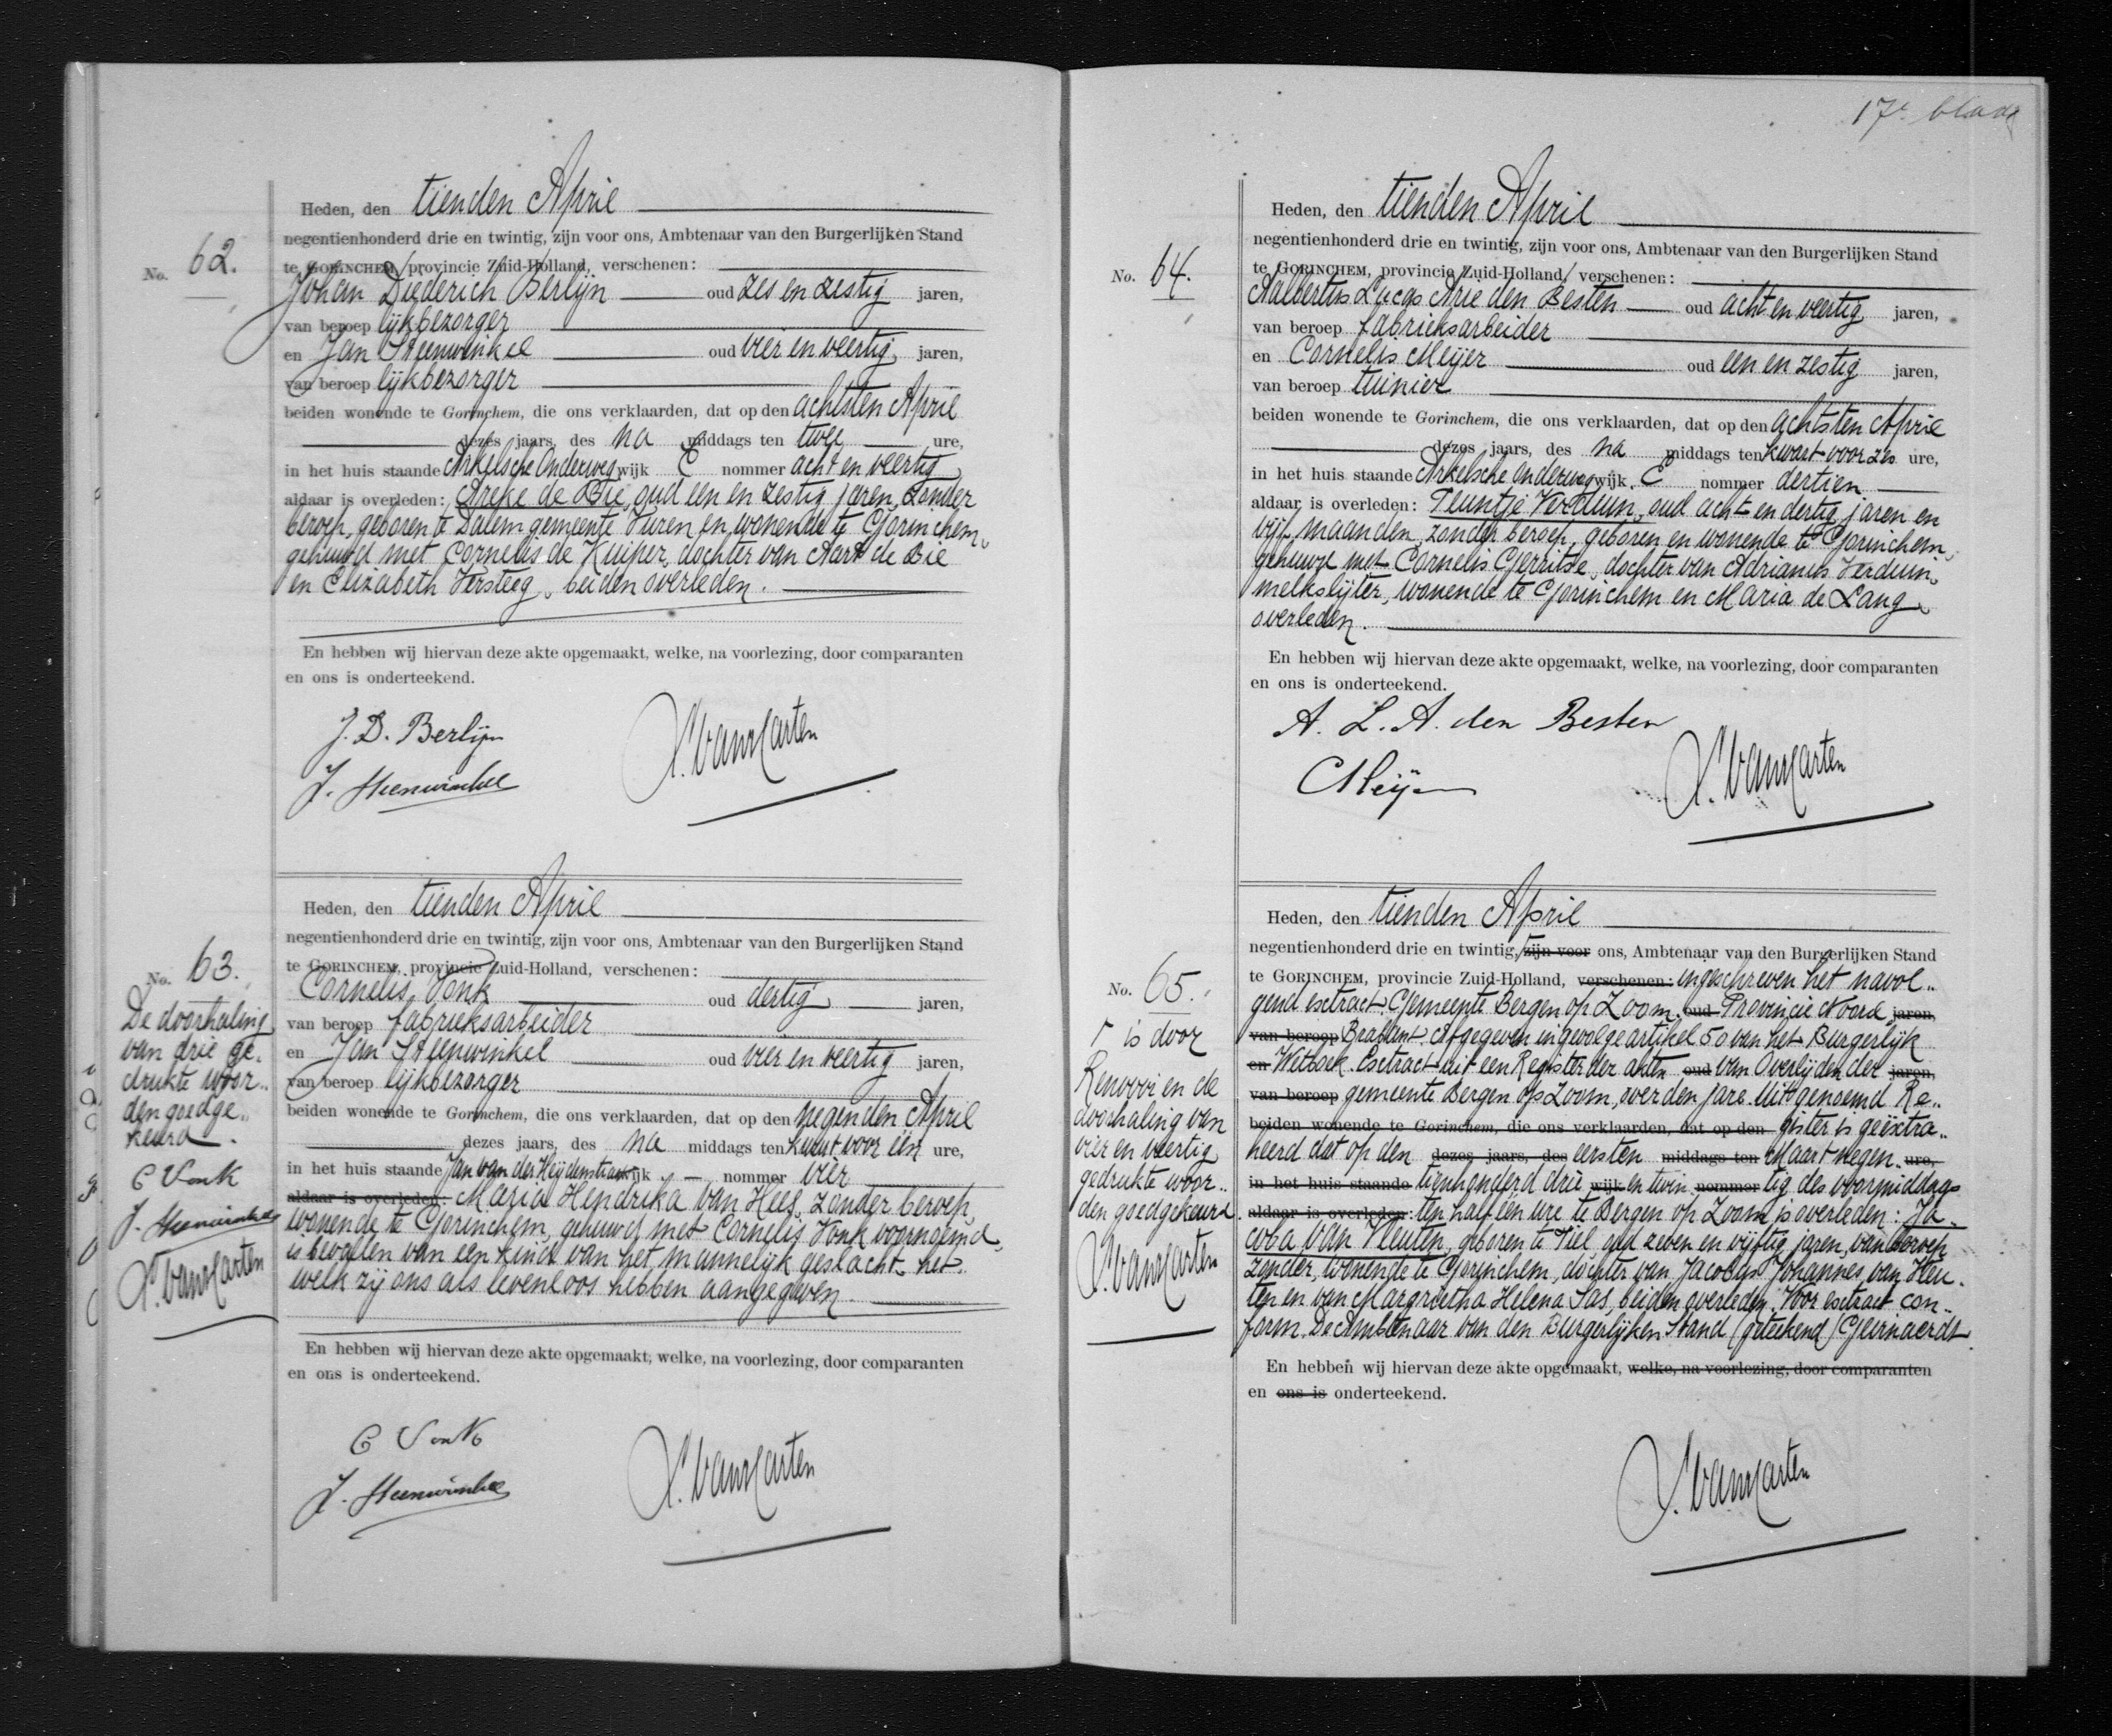 No. 62.
Heden, den tienden April
negentienhonderd drie en twintig, zijn voor ons, Ambtenaar van den Burgerlijken Stand
te GORINCHEM, provincie Zuid-Holland, verschenen:
Johan Diederich Berlijn oud zes en zestig jaren,
van beroep lijkbezorger
en Jan Steenwinkel oud vier en veertig jaren,
van beroep lijkbezorger
beiden wonende te Gorinchem, die ons verklaarden, dat op den achtsten April
dezes jaars, des na middags ten twee ure,
in het huis staande Arkelsche Onderweg wijk C nommer acht en veertig
aldaar is overleden: Areke de Bie, oud een en zestig jaren, zonder
beroep, geboren te Dalem gemeente Vuren en wonende te Gorinchem,
gehuwd met Cornelis de Kuijper, dochter van Aart de Bie
en Elizabeth Versteeg, beiden overleden.
En hebben wij hiervan deze akte opgemaakt, welke, na voorlezing, door comparanten
en ons is onderteekend.
J. D. Berlijn
J. Steenwinkel

No. 63.
De doorhaling
van drie ge-
drukte woor-
den goedge-
keurd.
C Vonk
J. Steenwinkel
Heden, den tienden April
negentienhonderd drie en twintig, zijn voor ons, Ambtenaar van den Burgerlijken Stand
te GORINCHEM, provincie Zuid-Holland, verschenen:
Cornelis Vonk oud dertig jaren,
van beroep fabrieksarbeider
en Jan Steenwinkel oud vier en veertig jaren,
van beroep lijkbezorger
beiden wonende te Gorinchem, die ons verklaarden, dat op den negenden April
dezes jaars, des na middags ten kwart voor een ure,
in het huis staande Jan van der Heijdenstraat wijk — nommer vier
aldaar is overleden: Maria Hendrika van Hees, zonder beroep,
wonende te Gorinchem, gehuwd met Cornelis Vonk voornoemd,
is bevallen van een kind van het mannelijk geslacht, het-
welk zij ons als levenloos hebben aangegeven.
En hebben wij hiervan deze akte opgemaakt, welke, na voorlezing, door comparanten
en ons is onderteekend.
C Vonk
J. Steenwinkel

17e blad
No. 64.
Heden, den tienden April
negentienhonderd drie en twintig, zijn voor ons, Ambtenaar van den Burgerlijken Stand
te GORINCHEM, provincie Zuid-Holland, verschenen:
Aalbertus Lucas Arie den Besten oud acht en veertig jaren,
van beroep fabrieksarbeider
en Cornelis Meijer oud een en zestig jaren,
van beroep tuinier
beiden wonende te Gorinchem, die ons verklaarden, dat op den achtsten April
dezes jaars, des na middags ten kwart voor zes ure,
in het huis staande Arkelsche Onderweg wijk C nommer dertien
aldaar is overleden: Teuntje Verduin, oud acht en dertig jaren en
vijf maanden, zonder beroep, geboren en wonende te Gorinchem,
gehuwd met Cornelis Gerritse, dochter van Adrianus Verduin,
melkslijter, wonende te Gorinchem en Maria de Lang,
overleden.
En hebben wij hiervan deze akte opgemaakt, welke, na voorlezing, door comparanten
en ons is onderteekend.
A. L. A. den Besten
C Meijer

No. 65.
is door
Renvooi en de
doorhaling van
vier en veertig
gedrukte woor-
den goedgekeurd.
Heden, den tienden April
negentienhonderd drie en twintig, zijn voor ons, Ambtenaar van den Burgerlijken Stand
te GORINCHEM, provincie Zuid-Holland, verschenen: ingeschreven het navol-
gend extract: Gemeente Bergen op Zoom. oud Provincie Noord jaren,
van beroep Brabant. Afgegeven ingevolge artikel 50 van het Burgerlijk
en Wetboek. Extract uit een Register der akten oud van Overlijden der jaren,
van beroep gemeente Bergen op Zoom, over den jare. Uit genoemd Re-
beiden wonende te Gorinchem, die ons verklaarden, dat op den gister is geëxtra-
heerd dat op den dezes jaars, des eersten middags ten Maart negen- ure,
in het huis staande tienhonderd drie wijk en twin nommer tig des voormiddags
aldaar is overleden: ten half een ure te Bergen op Zoom is overleden: Ja-
coba van Vleuten, geboren te Tiel, oud zeven en vijftig jaren, van beroep
zonder, wonende te Gorinchem, dochter van Jacobus Johannes van Vleu-
ten en van Margrietha Helena Sas, beiden overleden. Voor extract con-
form. De Ambtenaar van den Burgerlijken Stand (geteekend)
En hebben wij hiervan deze akte opgemaakt, welke, na voorlezing, door comparanten
en ons is onderteekend.